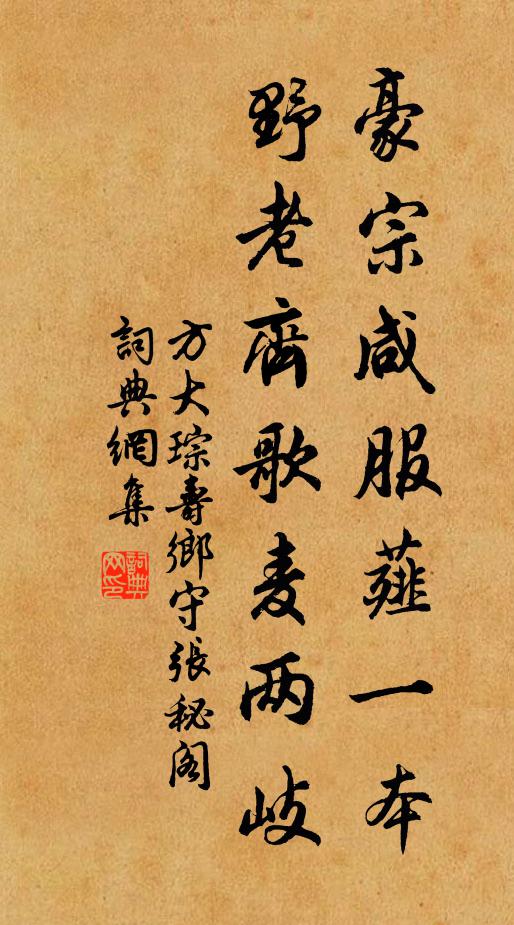 豪宗咸服薤一本
野老齊歌麦两岐
方大琮壽鄉守張秘阁
詞典網集
詞典网印